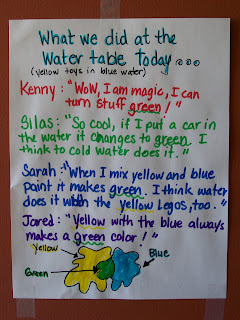 What we did at the
Water table Today...
(yellow toys in blue water)
Kenny: "WoW, I am magic, I can
turn stuff green!"
Silas: "So cool, if I put a car in
the water it changes to green. I
think to cold water does it."
Sarah: "When I mix yellow and blue
paint it makes green. I think water
does it with the yellow Legos, too."
Jared: "Yellow with the blue always
makes a green color!"
Yellow
Blue
Green